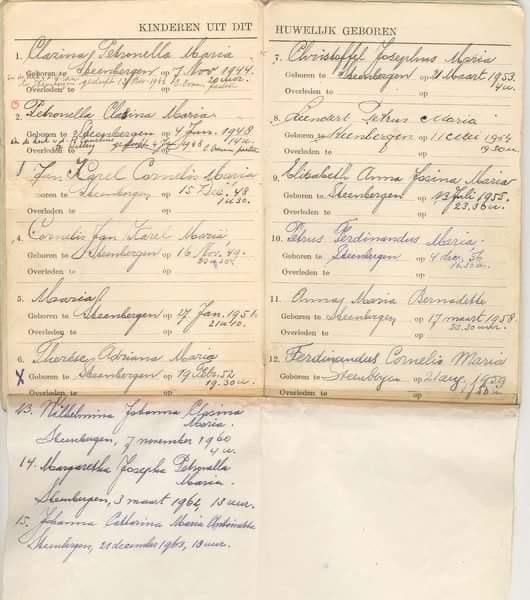 KINDEREN UIT DIT
1. Clazina Petronella Maria
Geboren te Steenbergen op 7 Nov 1944.
20 uur.
Overleden te op
2. Petronella Clasina Maria
Geboren te Steenbergen op 4 Jan. 1948
14 u.
Overleden te op
Jan Karel Cornelis Maria
Geboren te Steenbergen op 15 Dec. 48
1 u 30.
Overleden te op
4. Cornelis Jan Karel Maria
Geboren te Steenbergen op 16 Nov. 49.
Overleden te op
5. Maria
Geboren te Steenbergen op 27 Jan. 1951.
21 u 10.
Overleden te op
6. Therèse Adriana Maria
X Geboren te Steenbergen op 19 Febr. 52
19.30 u.
Overleden te op
HUWELIJK GEBOREN
7. Christoffel Josephus Maria
Geboren te Steenbergen op 21 Maart 1953.
4 u.
Overleden te op
8. Leendert Petrus Maria
Geboren te Steenbergen op 11 1954
19.30 u.
Overleden te op
9. Elisabeth Anna Josina Maria
Geboren te Steenbergen op 13 Juli 1955.
23.30 u.
Overleden te op
10. Petrus Ferdinandus Maria
Geboren te Steenbergen op 4 dec. 56
16.30 u.
Overleden te op
11. Anna Maria Bernadette
Geboren te Steenbergen op 17 maart 1958
20.30 uur.
Overleden te op
12. Ferdinandus Cornelis Maria
Geboren te Steenbergen op 21 aug. 1959
Overleden te op
13. Wilhelmina Johanna Clasina
Maria.
Steenbergen, 7 november 1960
4 u.
14. Margaretha Josepha Petronella
Maria.
Steenbergen, 3 maart 1962, 13 uur.
15. Johanna Catharina Maria Antoinette
Steenbergen, 28 december 1963, 18 uur.